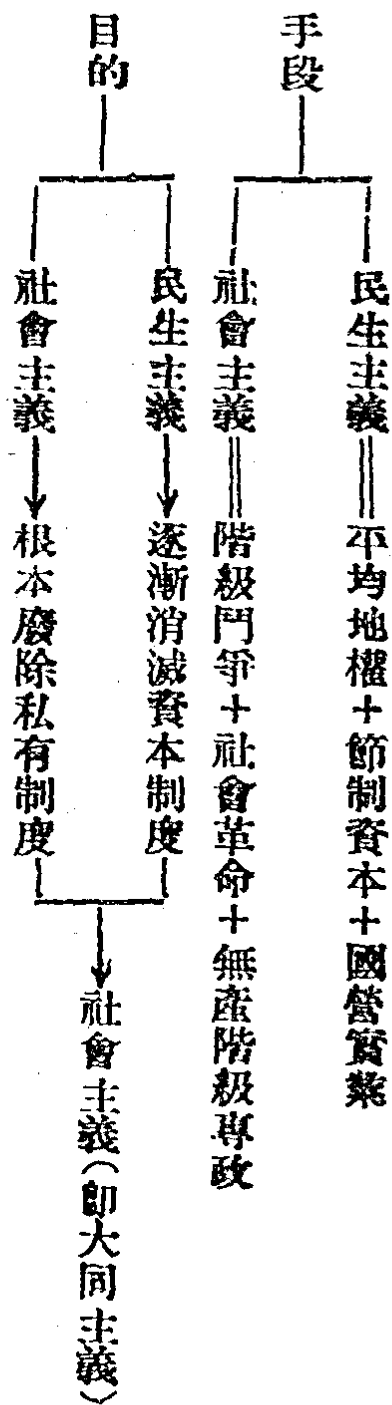 手段
民生主義＝平均地權＋節制資本＋國營實業
社會主義＝階級鬥爭＋社會革命＋無產階級專政
目的
民生主義→逐漸消滅資本制度
社會主義→根本廢除私有制度
→社會主義（即大同主義）